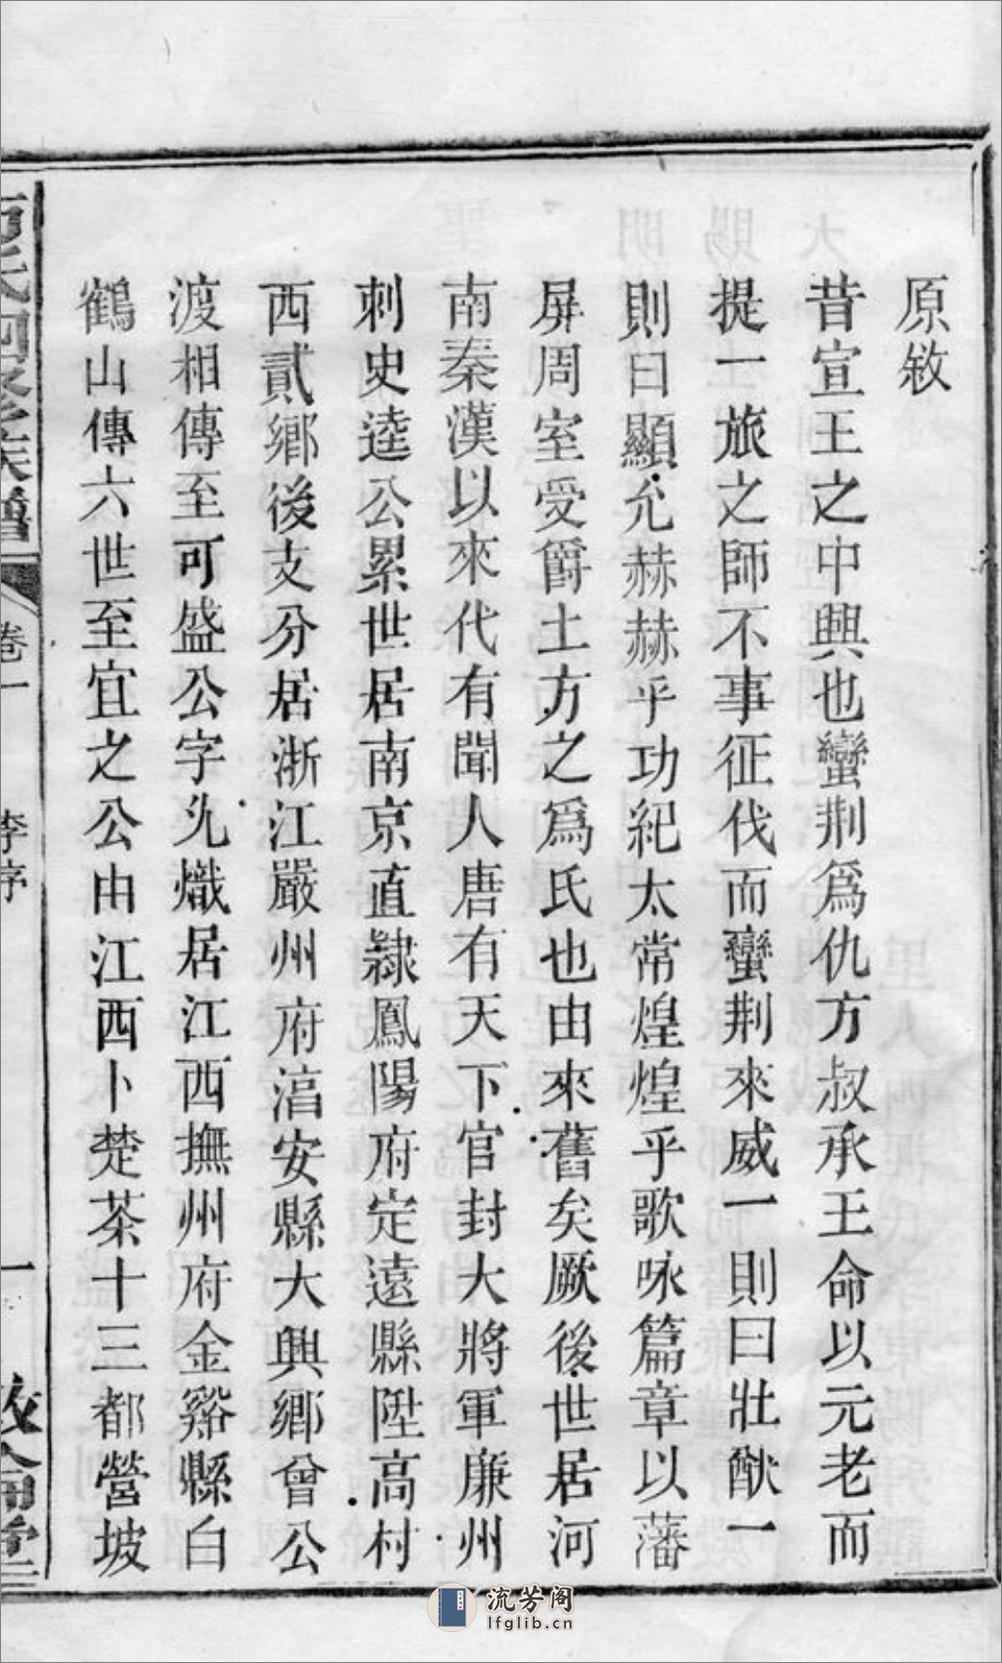 原敘
昔宣王之中興也蠻荆爲仇方叔承王命以元老而
提一旅之師不事征伐而蠻荆來威一則曰壯猷一
則曰顯允赫赫乎功紀太常煌煌乎歌咏篇章以藩
屏周室受爵土方之爲氏也由來舊矣厥後世居河
南秦漢以來代有聞人唐有天下官封大將軍廉州
刺史逵公累世居南京直隷鳳陽府定遠縣陞高村
西貳鄉後支分居浙江嚴州府湻安縣大興鄉曾公
渡相傳至可盛公字允熾居江西撫州府金谿縣白
鶴山傳六世至宜之公由江西卜楚茶十三都營坡
方氏四修族譜
卷一
李序
一
敘倫堂
流芳阁
lfglib.cn